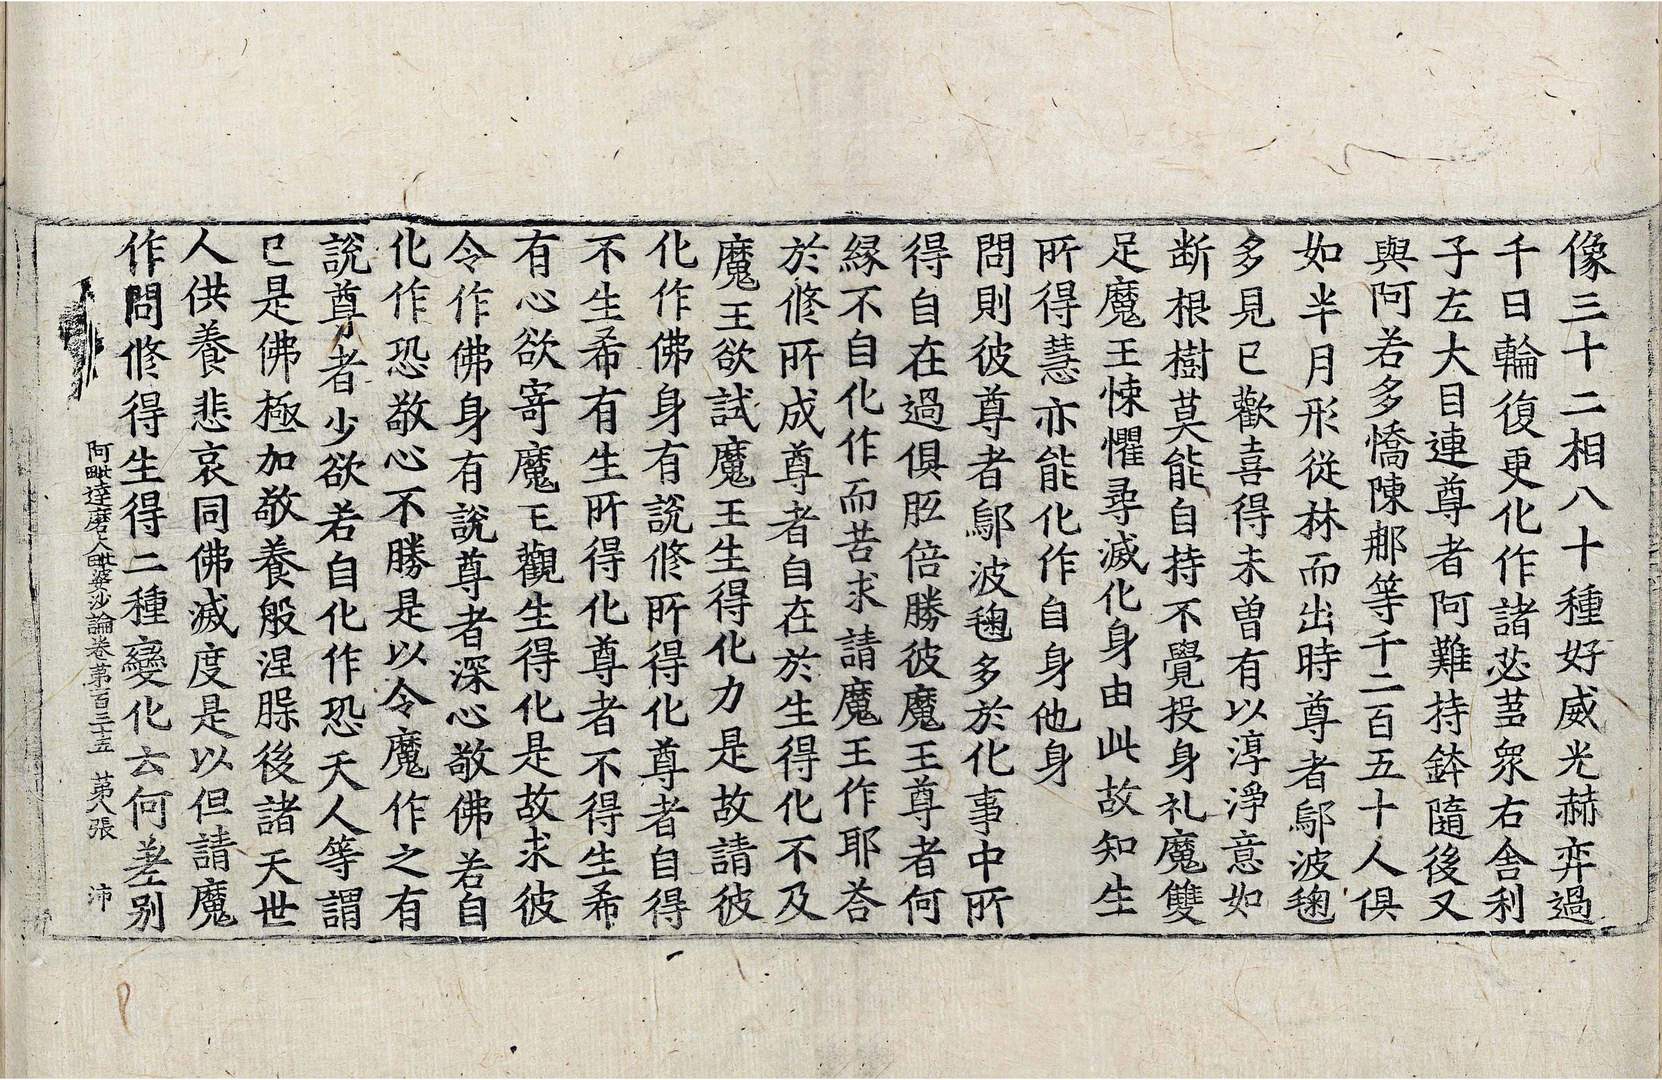 像三十二相八十種好威光赫弈過
千日輪復更化作諸苾蒭衆右舍利
子左大目連尊者阿難持鉢隨後又
與阿若多憍陳那等千二百五十人俱
如半月形從林而出時尊者鄔波毱
多見已歡喜得未曾有以淳淨意如
断根樹莫能自持不覺投身礼魔雙
足魔王悚懼尋滅化身由此故知生
所得慧亦能化作自身他身
問則彼尊者鄔波毱多於化事中所
得自在過俱胝倍勝彼魔王尊者何
縁不自化作而苦求請魔王作耶荅
於修所成尊者自在於生得化不及
魔王欲試魔王生得化力是故請彼
化作佛身有說修所得化尊者自得
不生希有生所得化尊者不得生希
有心欲寄魔王觀生得化是故求彼
令作佛身有說尊者深心敬佛若自
化作恐敬心不勝是以令魔作之有
說尊者少欲若自化作恐天人等謂
已是佛極加敬養般涅槃後諸天世
人供養悲哀同佛滅度是以但請魔
作問修得生得二種變化云何差别
阿毗達磨大毗婆沙論卷第一百三十五 第八張 沛